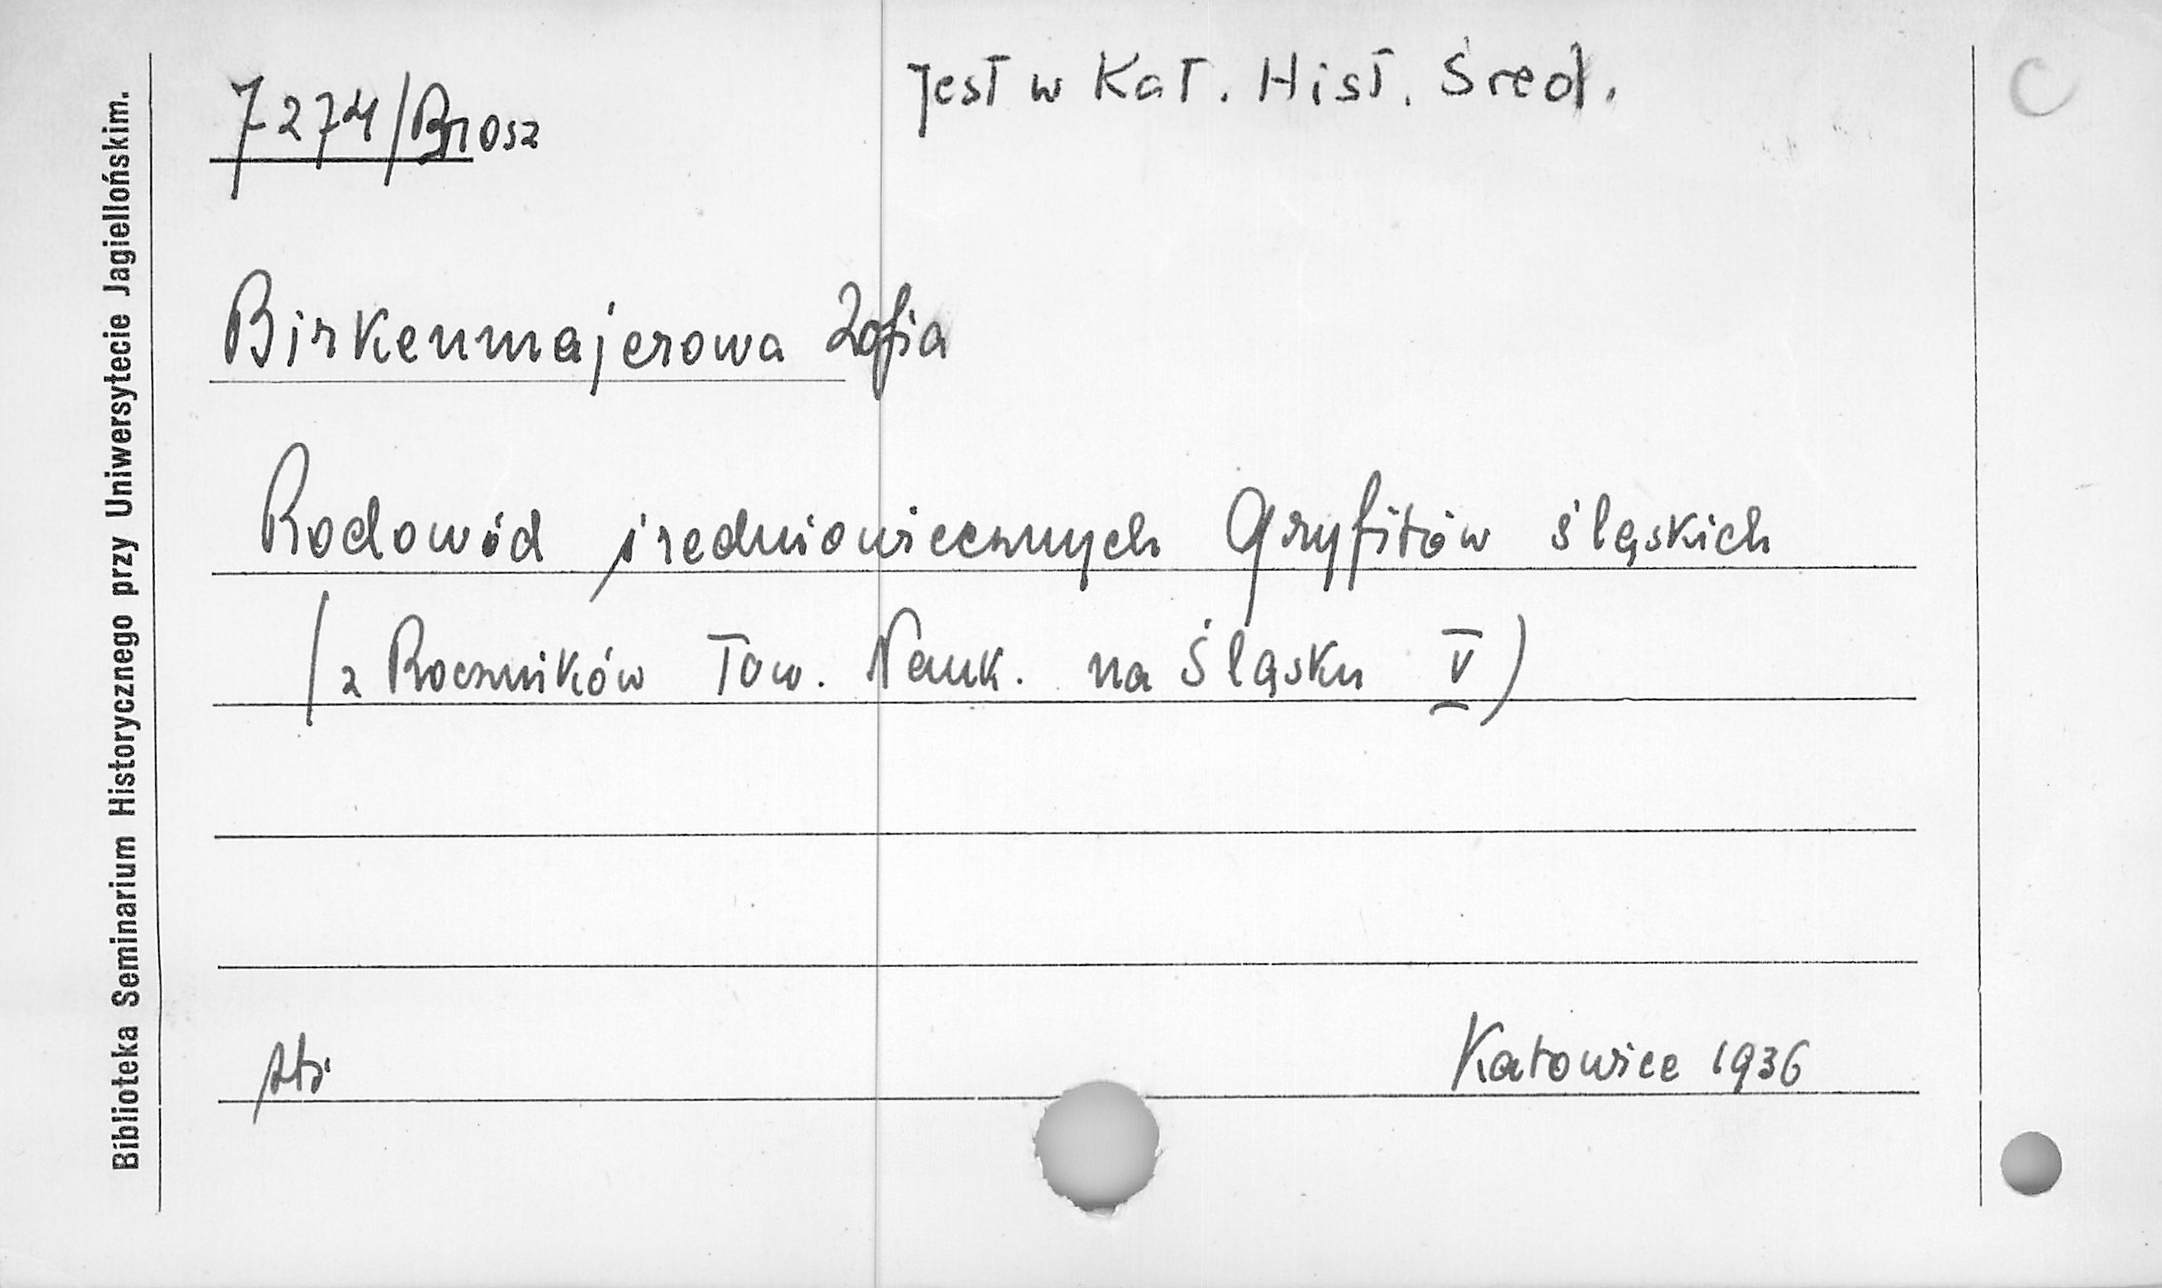 7274/Brosz
Jest w Kat. Hist. Śred.
Birkenmajerowa Zofia
Rodowód średniowiecznych Gryfitów śląskich
(z Roczników Tow. Nauk. na Śląsku V)
Katowice 1936
Biblioteka Seminarium Historycznego przy Uniwersytecie Jagiellońskim.